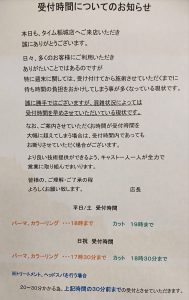 受付時間についてのお知らせ
本日も、タイム稲城店へご来店いただき
誠にありがとうございます。
日々、多くのお客様にご利用いただき
ありがたいことではあるのですが
特に週末に関しては、受け付けてから施術させていただくまでに
待ち時間の負担をおかけしてしまう事が多くなっている現状です。
誠に勝手ではございますが、混雑状況によっては
受付時間を早めさせていただいている現状です。
なお、ご案内させていただくお時間が受付時間を
大幅に超えてしまう場合は、受付時間内であっても
お断りさせていただく場合がございます。
より良い技術提供ができるよう、キャスト一人一人が全力で
営業に取り組んでまいります。
皆様の、ご理解・ご了承の程
よろしくお願い致します。
店長
平日/土 受付時間
パーマ、カラーリング ・・・18時まで カット 19時まで
日祝 受付時間
パーマ、カラーリング ・・・17時30分まで カット 18時30分まで
※トリートメント、ヘッドスパを行う場合
20~30分かかる為、上記時間の30分前までの受付とさせていただきます。